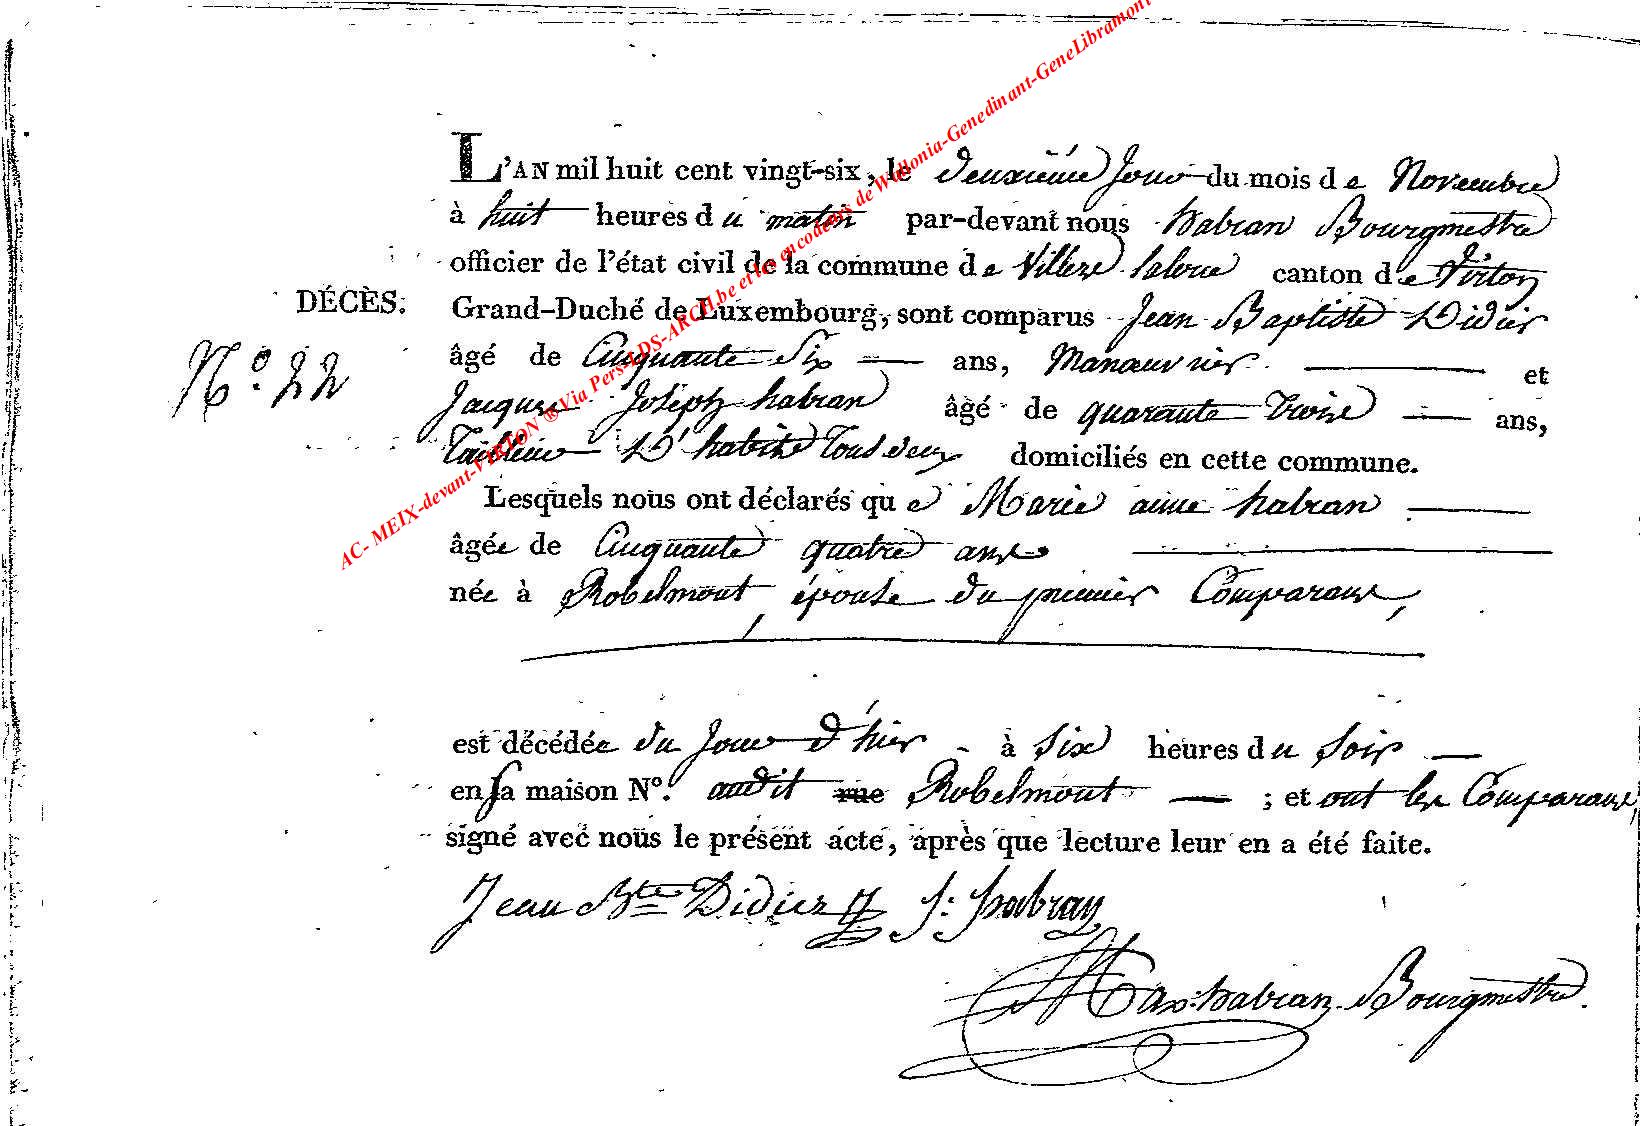 L'AN mil huit cent vingt-six, le deuxième Jour du mois de Novembre
à huit heures du matin par-devant nous habran Bourgmestre
officier de l'état civil de la commune de Villers laloue canton de Virton
DÉCÈS. Grand-Duché de Luxembourg, sont comparus Jean Baptiste Didier
âgé de Cinquante Six ans, Manœuvrier et
N.º 22
Jacques Joseph habran âgé de quarante Trois ans,
Tailleur D'habits Tous deux domiciliés en cette commune.
Lesquels nous ont déclarés que Marie anne habran
âgée de Cinquante quatre ans
née à Robelmont, épouse du premier Comparant,
est décédée du Jour d'hier à Six heures du Soir
en sa maison Nº. audit rue Robelmont ; et ont les Comparans,
signé avec nous le présent acte, après que lecture leur en a été faite.
Jean Bte Didier J: habran
Max: habran Bourgmestre.
AC- MEIX-devant-VIRTON ® Via Pers-LDS-ARCH.be et les encodeurs de Wallonia-Genedinant-GeneLibramont